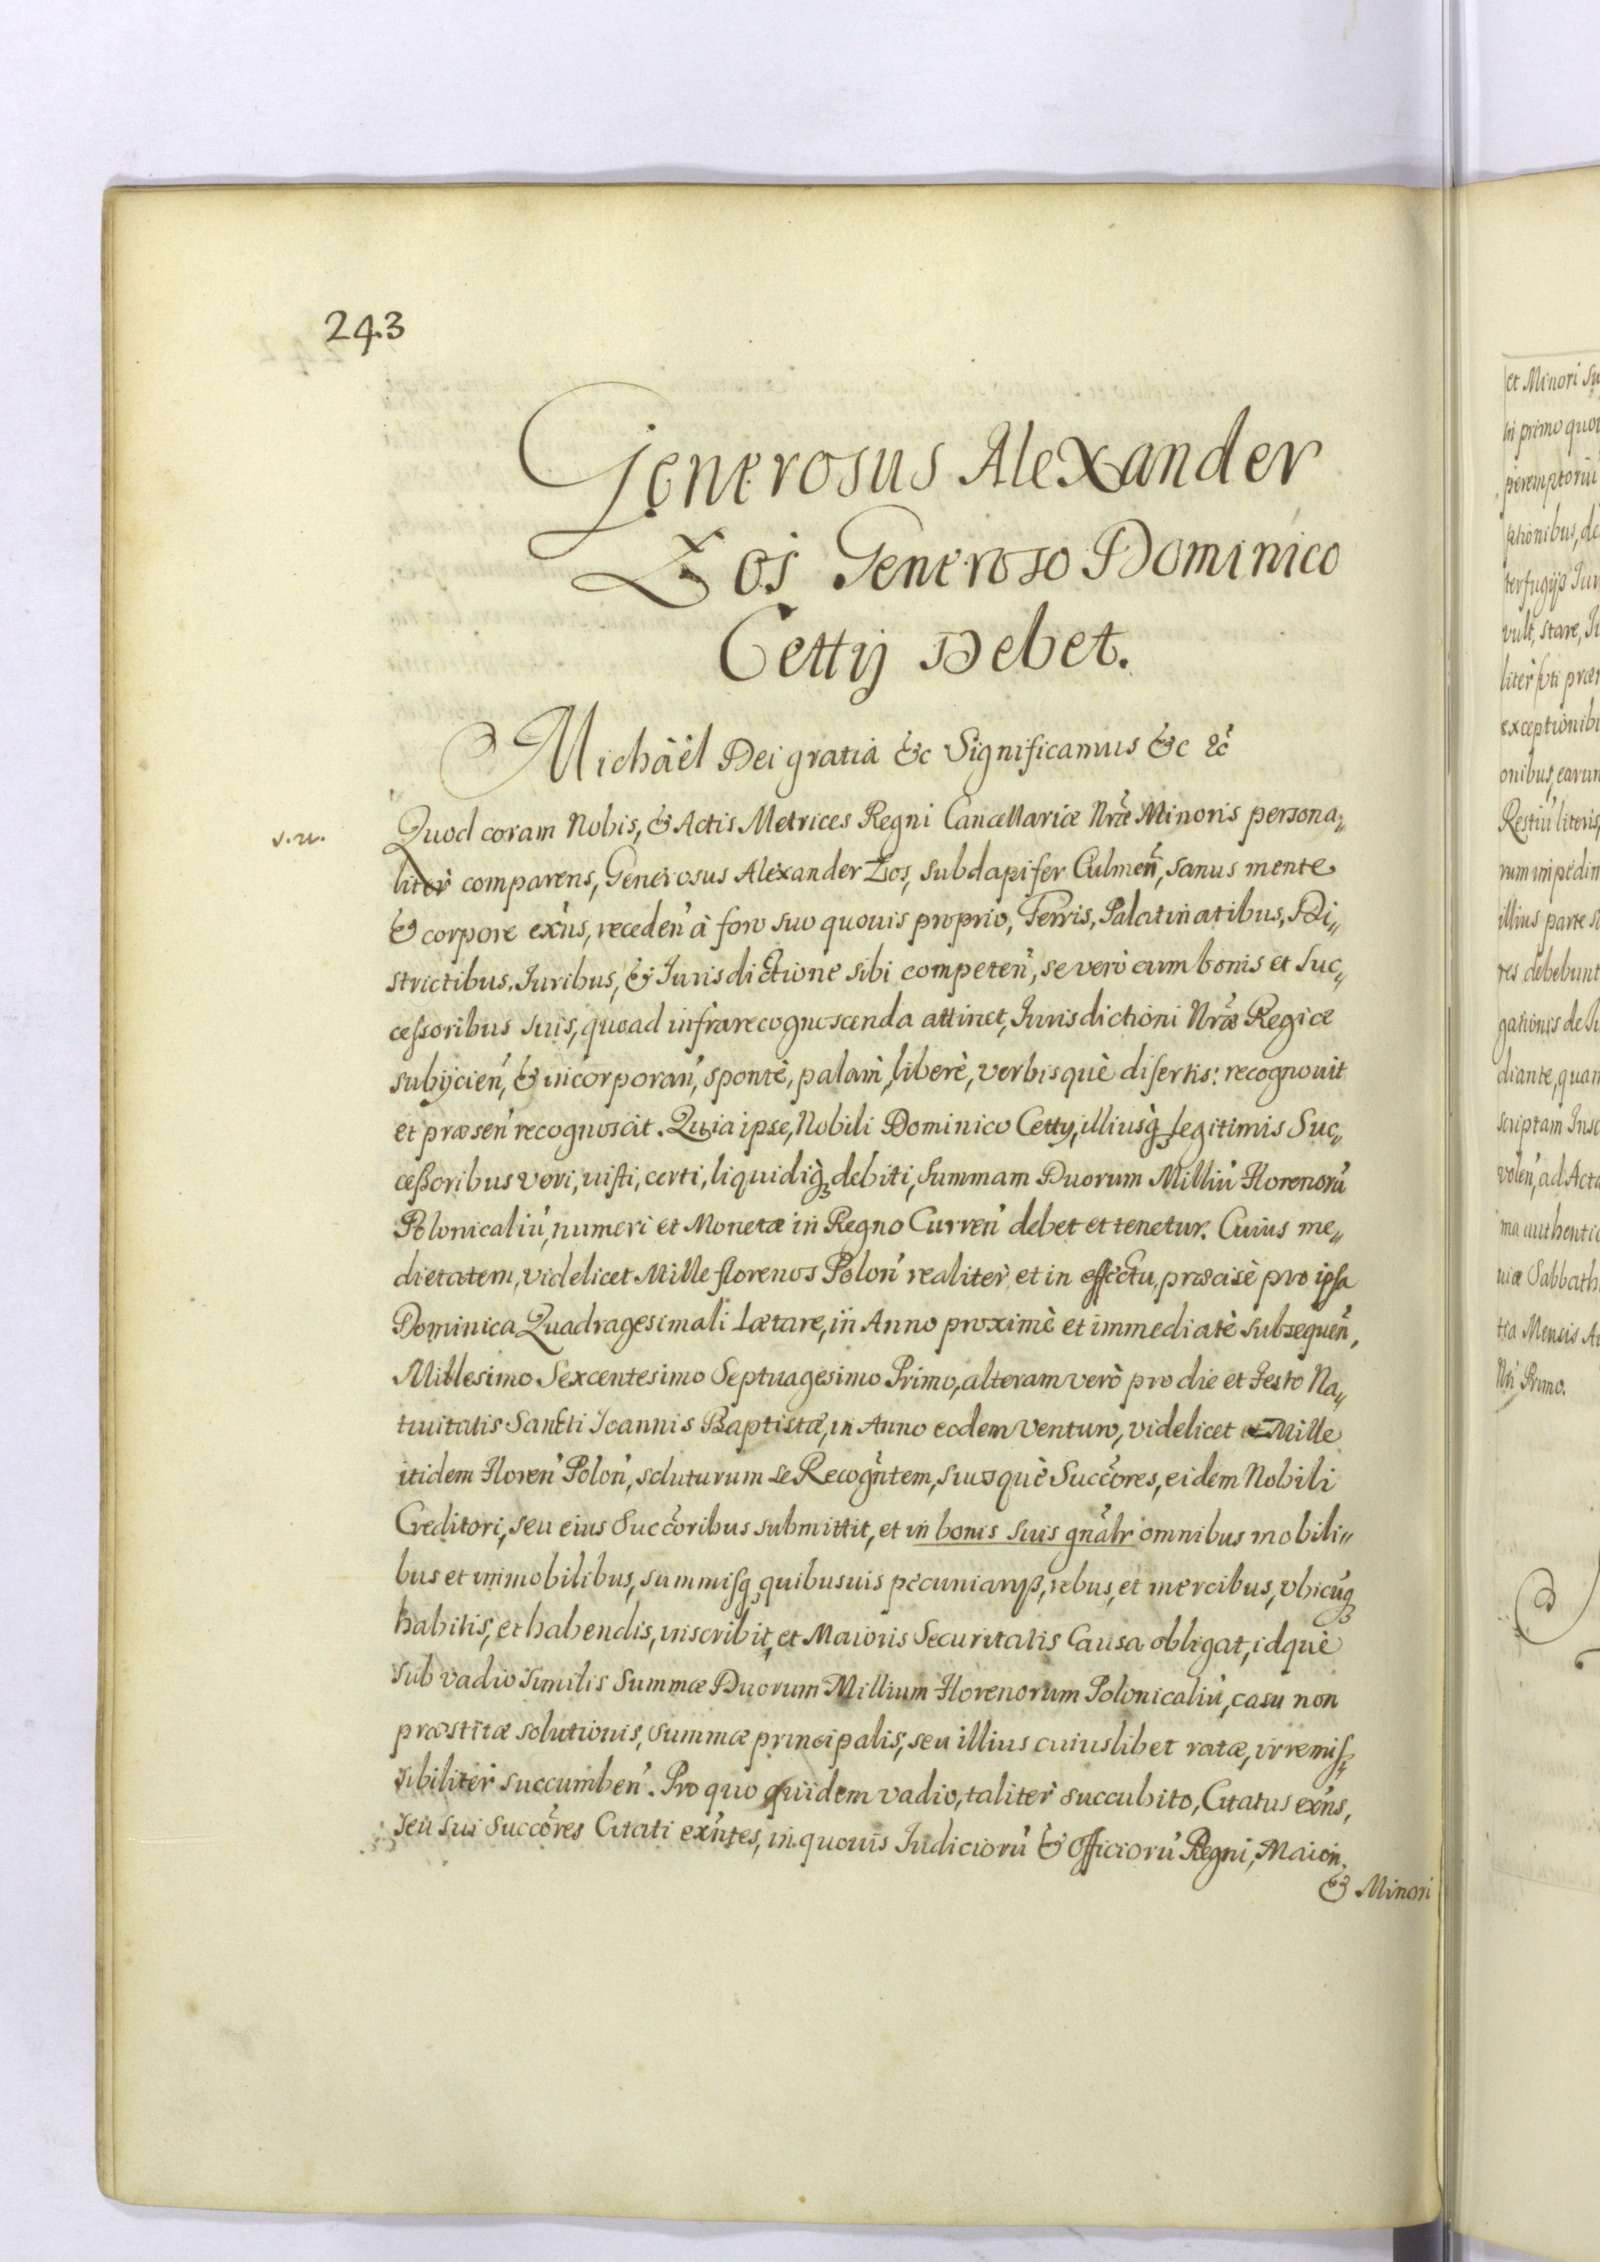 243
Generosus Alexander
Zoś Generoso Dominico
Cettÿ Debet.
Michäel Dei gratia &c Significamus &c &c
Quod coram Nobis, & Actis Metrices Regni Cancellariæ Nr̃æ Minoris persona„
liter comparens, Generosus Alexander Zos, subdapifer Culmeñ, sanus mente
& corpore ex'ns, receden' à foro suo quouis proprio, Terris, Palatinatibus, Di„
strictibus, Iuribus, & Iurisdictione sibi competen', se verò cum bonis et Suc„
cessoribus suis, quoad infra recognoscenda attinet, Iurisdictioni Nr̃æ Regiæ
subijcien', & incorporan', spontè, palàm, liberè, verbisquè disertis: recognouit
et præsen' recognoscit. Quia ipse, Nobili Dominico Cetty, illiusq̀; legitimis Suc„
cessoribus veri, iusti, certi, liquidiq̀; debiti, Summam Duorum Milliu' Florenoru'
Polonicaliu', numeri et Monetæ in Regno Curren' debet et tenetur. Cuius me„
dietatem, videlicet Mille florenos Polon' realiter et in effectu, præcisè pro ipsa
Dominica Quadragesimali Lætare, in Anno proximè et immediatè subsequeñ,
Millesimo Sexcentesimo Septuagesimo Primo, alteram verò pro die et Festo Na„
tiuitatis Sancti Ioannis Baptistæ, in Anno eodem venturo, videlicet Mille
itidem Floren' Polon', soluturum se Recogñtem, suosquè Succ̃ores, eidem Nobili
Creditori, seu eius Succ̃oribus submittit, et in bonis suis gnãlr omnibus mobili„
bus et immobilibus, summisq; quibusuis pecuniarijs, rebus, et mercibus, vbicu'q;
habitis, et habendis, inscribit, et Maioris Securitatis Causa obligat, idquè
sub vadio similis Summæ Duorum Millium Florenorum Polonicaliu', casu non
præstitæ solutionis, Summæ principalis, seu illius cuiuslibet ratæ, irremis„
sibiliter succumben'. Pro quo quidem vadio, taliter succubito, Citatus ex'ns,
seu sui Succ̃ores Citati ex'ntes, in quouis Iudicioru' & Officioru' Regni, Maiori
& Minori
et Minori
in primo
sationibus, de
vult, stare,
exceptionib
onibus, earum
illius parte
res debebunt
gationis de
scriptam
volen', ad Acta
ma authentic
tia Mensis
Primo.